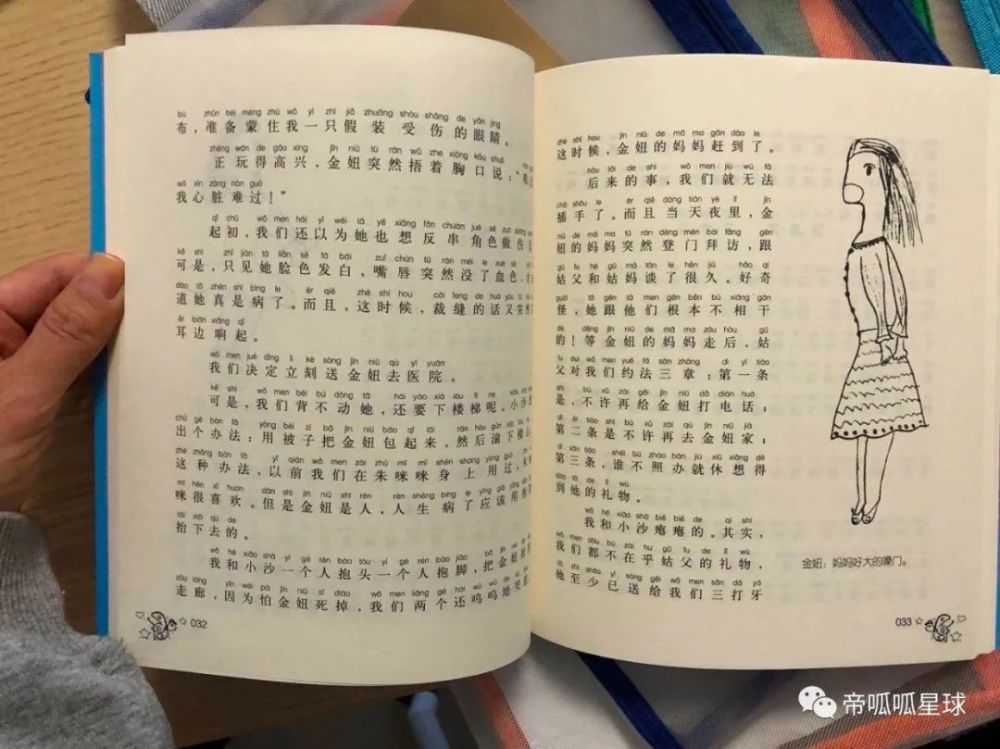 bù zhǔn bèi méng zhù wǒ yì zhī jiǎ zhuāng shòu shāng de yǎn jing
布,准备蒙住我一只假装受伤的眼睛。
zhèng wán de gāo xìng jīn niū tū rán wǔ zhe xiōng kǒu shuō
正玩得高兴,金妞突然捂着胸口说:“难过
wǒ xīn zàng nán guò
我心脏难过!”
qǐ chū wǒ men hái yǐ wéi tā yě xiǎng fǎn chuàn jué sè
起初,我们还以为她也想反串角色做伤
kě shì zhǐ jiàn tā liǎn sè fā bái zuǐ chún tū rán méi le xuè sè
可是,只见她脸色发白,嘴唇突然没了血色,
dào tā zhēn shì bìng le ér qiě zhè shí hou cái feng de huà yòu
道她真是病了。而且,这时候,裁缝的话又
ěr biān xiǎng qǐ
耳边响起。
wǒ men jué dìng lì kè sòng jīn niū qù yī yuàn
我们决定立刻送金妞去医院。
kě shì wǒ men bēi bú dòng tā hái yào xià lóu tī ne
可是,我们背不动她,还要下楼梯呢。小沙
chū gè bàn fǎ yòng bèi zi bǎ jīn niū bāo qǐ lái rán hòu gǔn xià lóu
出个办法:用被子把金妞包起来,然后滚下楼
zhè zhǒng bàn fǎ yǐ qián wǒ men zài zhū mī mī shēn shang yòng guò
这种办法,以前我们在朱咪咪身上用过,朱咪
mī hěn xǐ huan dàn shì jīn niū shì rén rén shēng bìng le yīng gāi yòng
咪很喜欢。但是金妞是人,人生病了应该用
tái xià qù de
抬下去的。
wǒ hé xiǎo shā yí gè rén bào tóu yí gè rén bào jiǎo bǎ jīn niū
我和小沙一个人抱头一个人抱脚,把金妞
zǒu láng yīn wèi pà jīn niū sǐ diào wǒ men liǎng gè hái wū wū de kū
走廊,因为怕金妞死掉,我们两个还呜呜地哭
032
zhè shí hou jīn niū de mā ma gǎn dào le
这时候,金妞的妈妈赶到了。
hòu lái de shì wǒ men jiù wú fǎ
后来的事,我们就无法
chā shǒu le ér qiě dàng tiān yè lǐ jīn
插手了。而且当天夜里,金
niū de mā ma tū rán dēng mén bài fǎng gēn
妞的妈妈突然登门拜访,跟
gū fu hé gū mā tán le hěn jiǔ hào qí
姑父和姑妈谈了很久。好奇
guài tā gēn tā men gēn běn bù xiāng gān
怪,她跟他们根本不相干
de děng jīn niū de mā ma zǒu hòu gū
的!等金妞的妈妈走后,姑
fu duì wǒ men yuē fǎ sān zhāng dì yī tiáo
父对我们约法三章:第一条
shì bù xǔ zài gěi jīn niū dǎ diàn huà
是,不许再给金妞打电话;
dì èr tiáo shì bù xǔ zài qù jīn niū jiā
第二条是不许再去金妞家;
dì sān tiáo shéi bú zhào bàn jiù xiū xiǎng dé
第三条,谁不照办就休想得
dào tā de lǐ wù
到他的礼物。
wǒ hé xiǎo shā biē biē de qí shí
我和小沙瘪瘪的。其实,
wǒ men dōu bú zài hu gū fu de lǐ wù
我们都不在乎姑父的礼物,
tā zhì shǎo yǐ sòng gěi wǒ men sān dá yá
他至少已送给我们三打牙
金妞:妈妈好大的嗓门。
033
帝呱呱星球